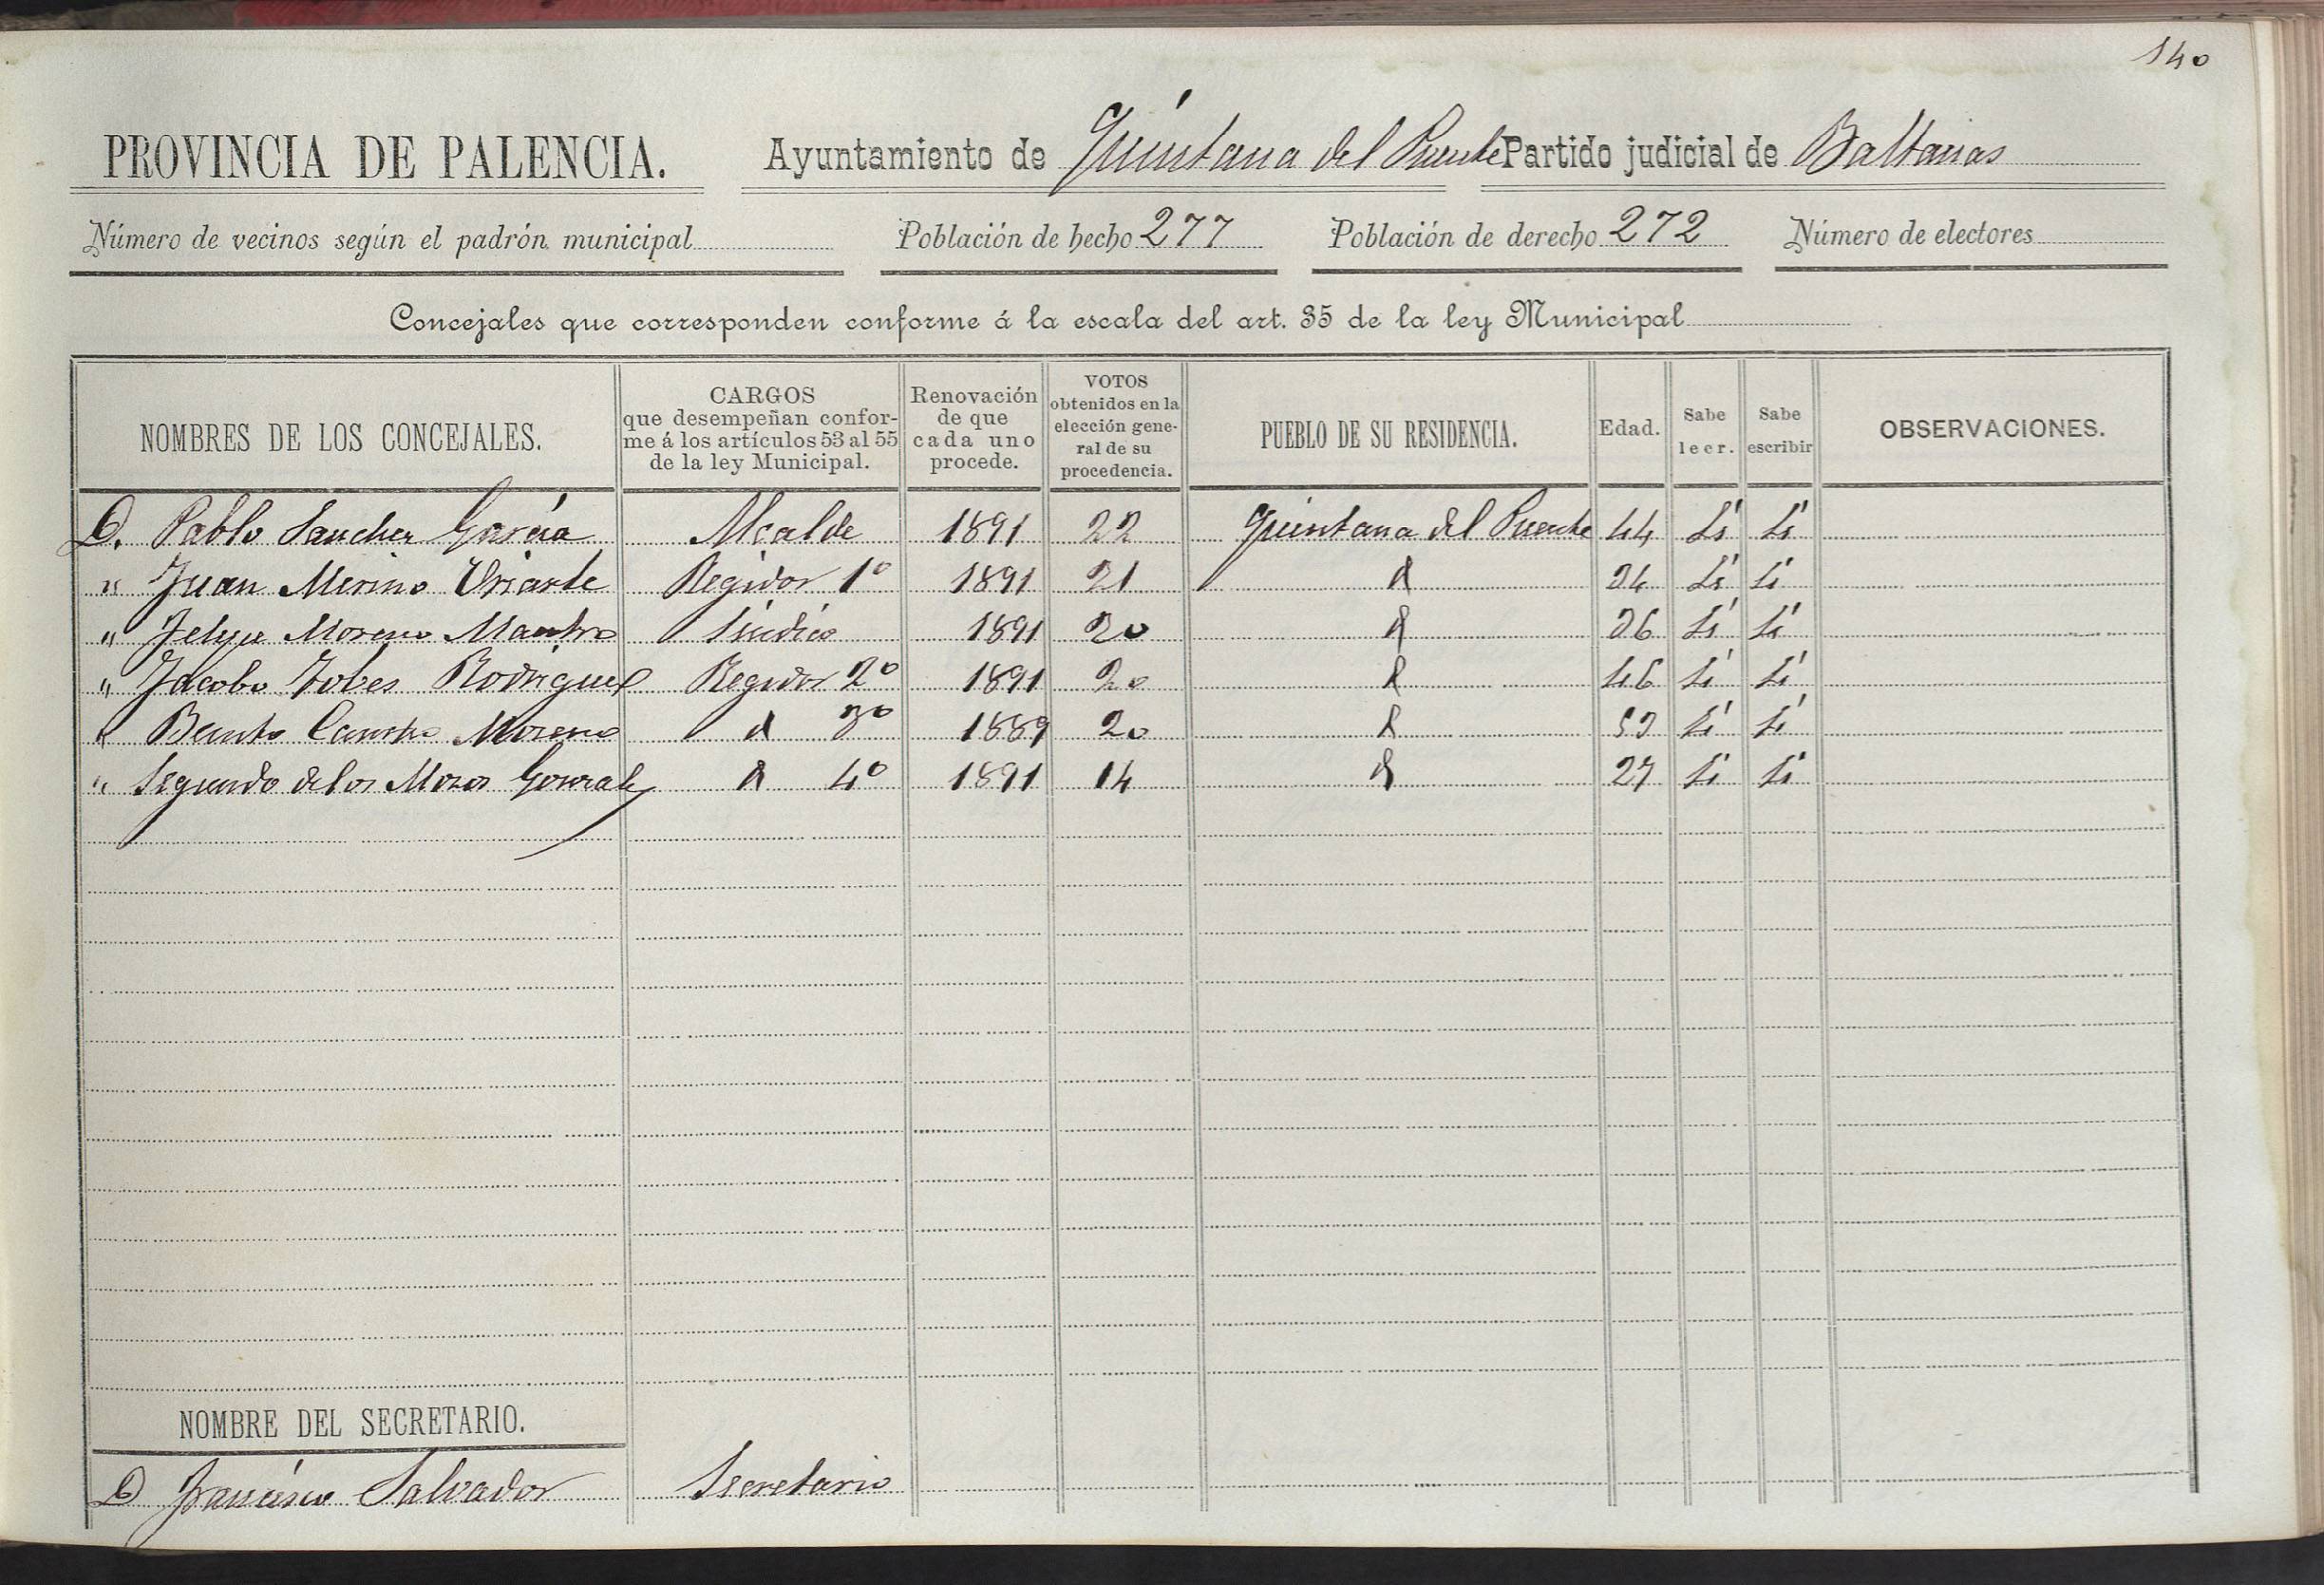 140
PROVINCIA DE PALENCIA. Ayuntamiento de Quintana del Puente Partido judicial de Baltanas
Número de vecinos según el padrón municipal Población de hecho 277 Población de derecho 272 Número de electores
Concejales que corresponden conforme á la escala del art. 35 de la ley Municipal
NOMBRES DE LOS CONCEJALES. CARGOS que desempeñan conforme á los artículos 53 al 55 de la ley Municipal. Renovación de que cada uno procede. VOTOS obtenidos en la elección general de su procedencia. PUEBLO DE SU RESIDENCIA. Edad. Sabe leer. Sabe escribir OBSERVACIONES.
D. Pablo Sanchez García Alcalde 1891 22 Quintana del Puente 44 Si Si
" Juan Merino Uriarte Regidor 1º 1891 21 id 34 Si Si
" Felipe Moreno Síndico 1891 20 id 36 Si Si
" Jacobo Tobes Rodriguez Regidor 2º 1891 20 id 46 Si Si
" Benito Moreno id 3º 1889 20 id 53 Si Si
" Segundo de los Mozos Gonzalez id 4º 1891 14 id 27 Si Si
NOMBRE DEL SECRETARIO.
D Francisco Salvador Secretario